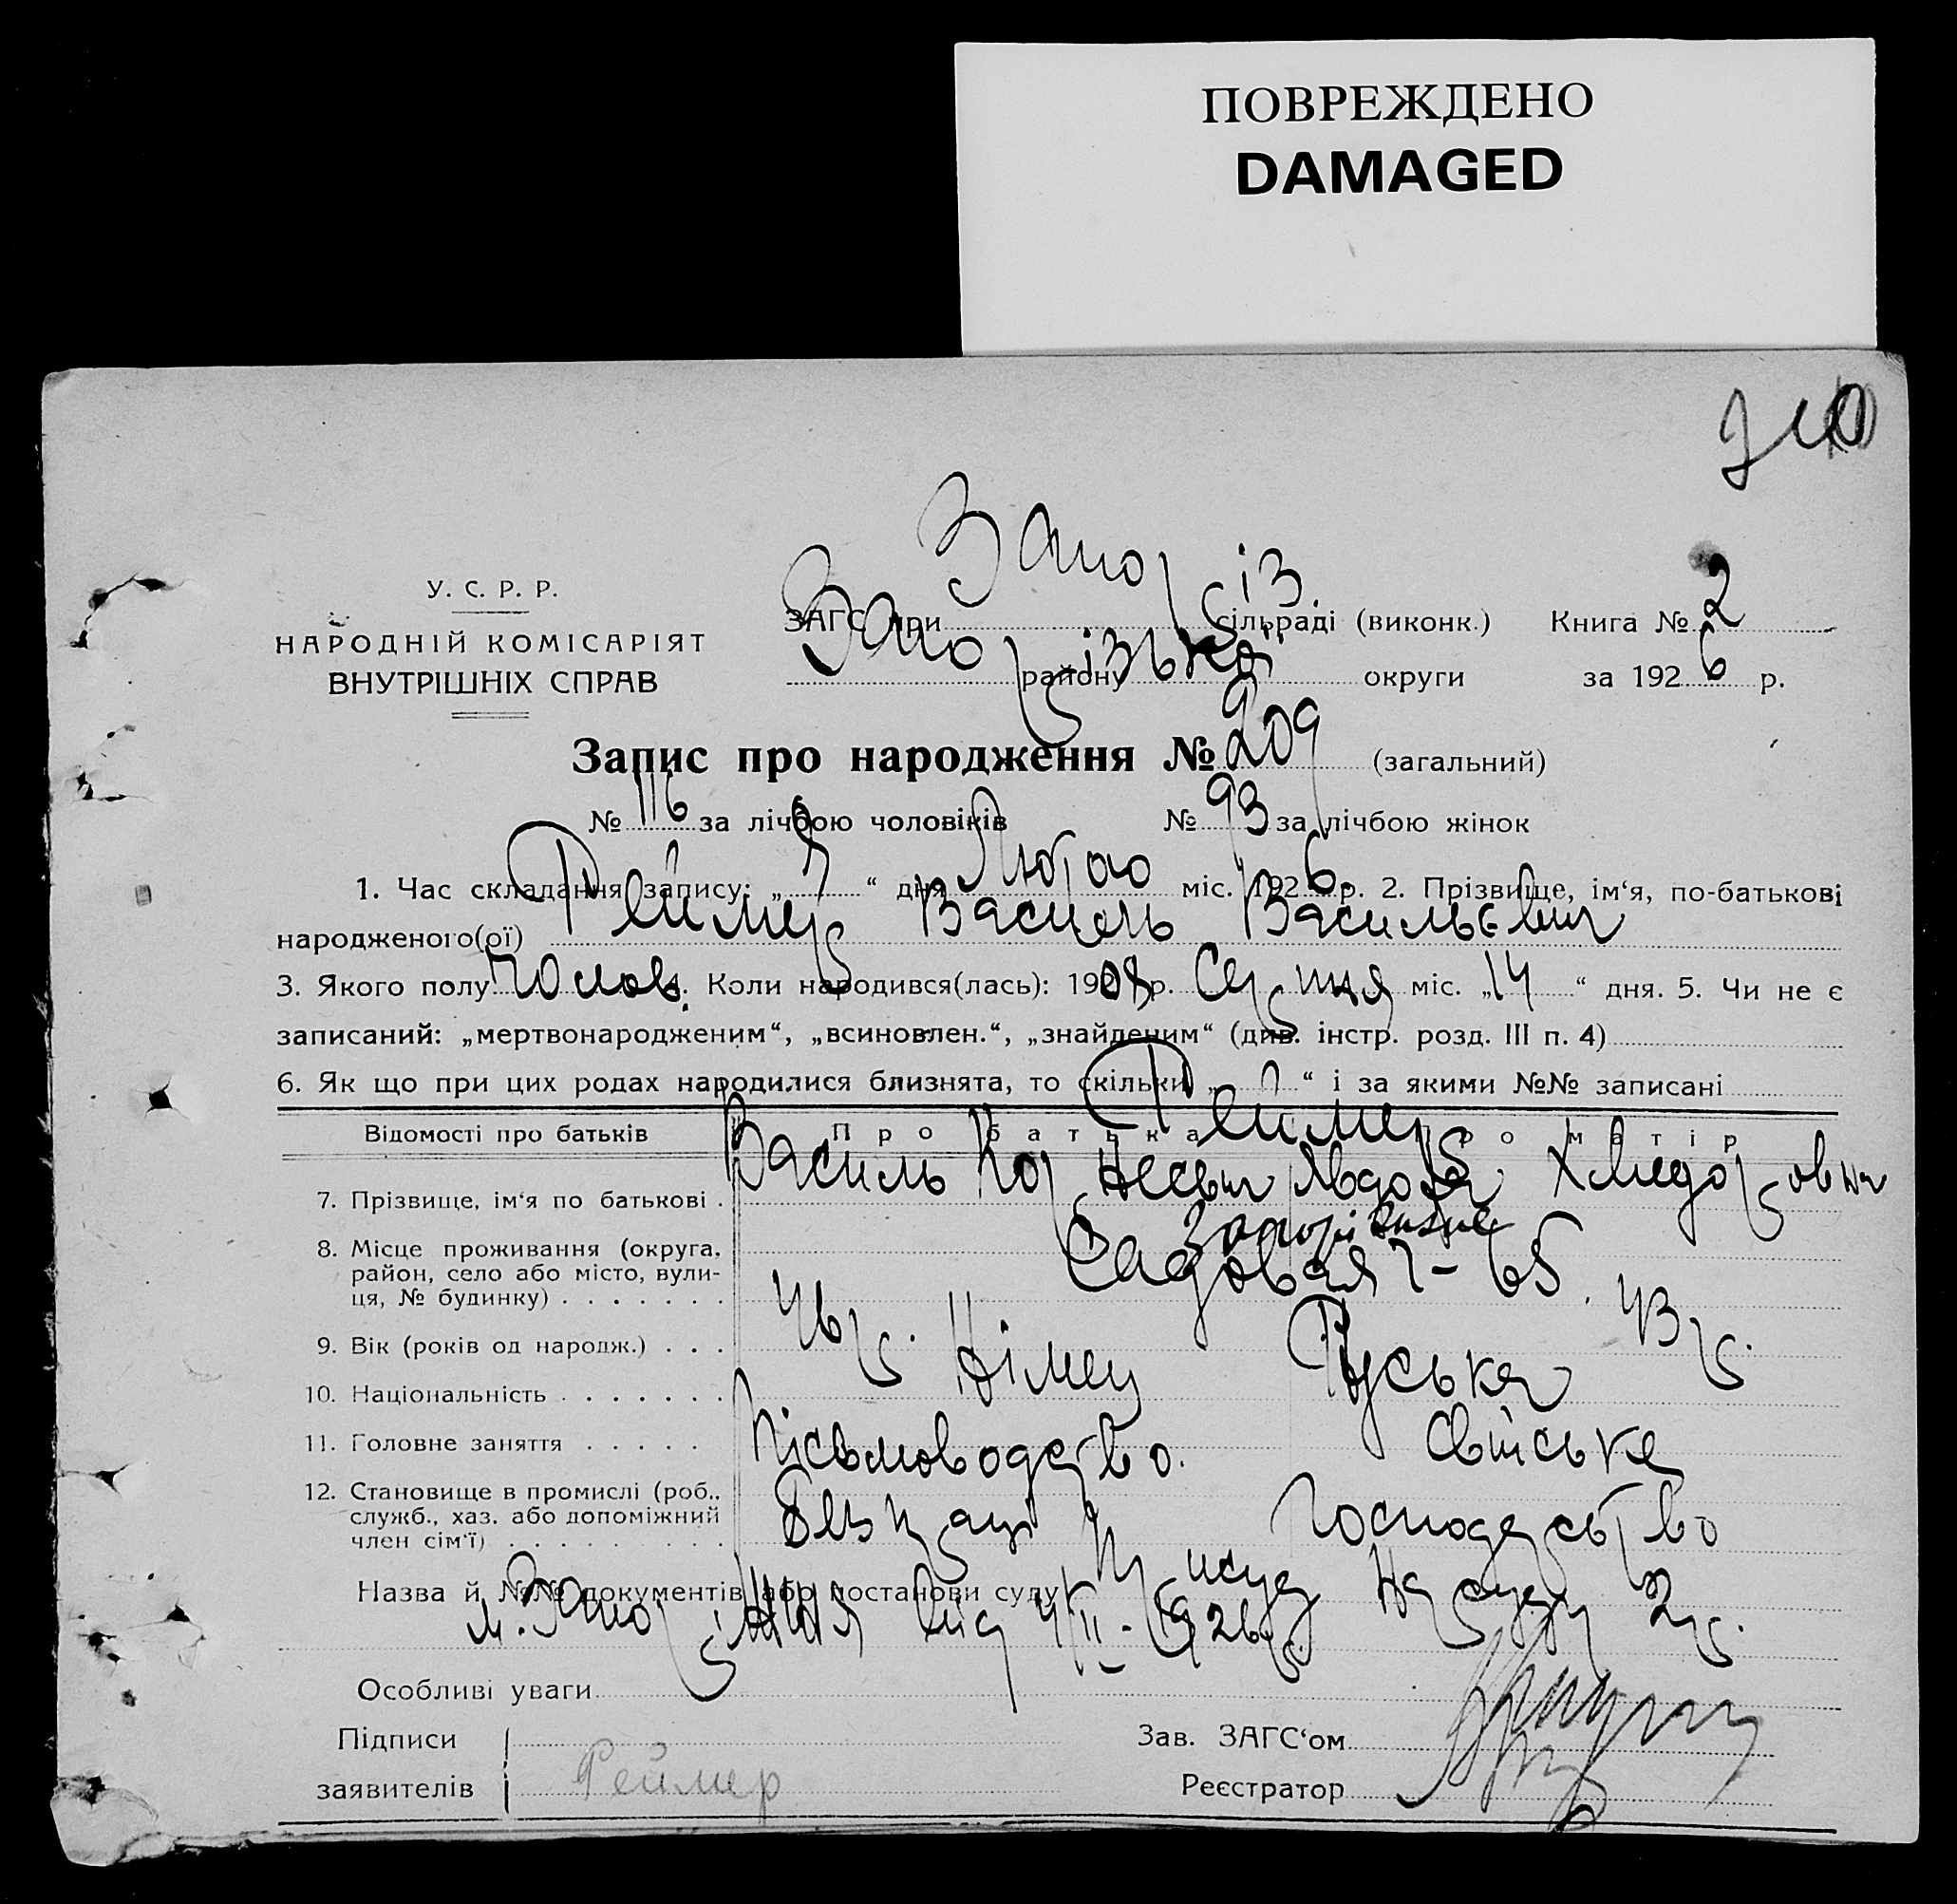 ПОВРЕЖДЕНО
DAMAGED
У. С. Р. Р.
НАРОДНІЙ КОМІСАРІЯТ
ВНУТРІШНІХ СПРАВ
Запоріз.
ЗАГС при сільраді (виконк.) Книга № 2
Запорізької
району округи за 1926 р.
Запис про народження № 209 (загальний)
№ 116 за лічбою чоловіків № 93 за лічбою жінок
1. Час складання запису: „ “ дня Лютого міс. 1926 р. 2. Прізвище, ім‘я, по-батькові
народженого(ої) Реймер Василь Васильевич
3. Якого полу Чолов. 4. Коли народився(лась): 1908 р. Серпця міс. „14“ дня. 5. Чи не є
записаний: „мертвонародженим“, „всиновлен.“, „знайденим“ (див. інстр. розд. III п. 4)
6. Як що при цих родах народилися близнята, то скільки „ “ і за якими №№ записані
Відомості про батьків Про батька Про матір
Реймер
7. Прізвище, ім‘я по батькові . Василь Корнеевич Явдокия Хведоровна
8. Місце проживання (округа, Запоріжжя
район, село або місто, вули- Садовая 7-65
ця, № будинку) . . . . . . .
9. Вік (років од народж.) . . . 46 р. 43 р.
10. Національність . . . . . . . Німец Руська
11. Головне заняття . . . . . Пісьмоводство. Свійське
12. Становище в промислі (роб., Безпраці Господарство
служб., хаз. або допоміжний
член сім‘ї) . . . . . . . . .
Назва й №№ документів або постанови суду Присуд Нарсуду 2 р.
м. Запоріжжя від 4/II-1926 р.
Особливі уваги
Підписи Зав. ЗАГС‘ом
заявителів Реймер Реєстратор